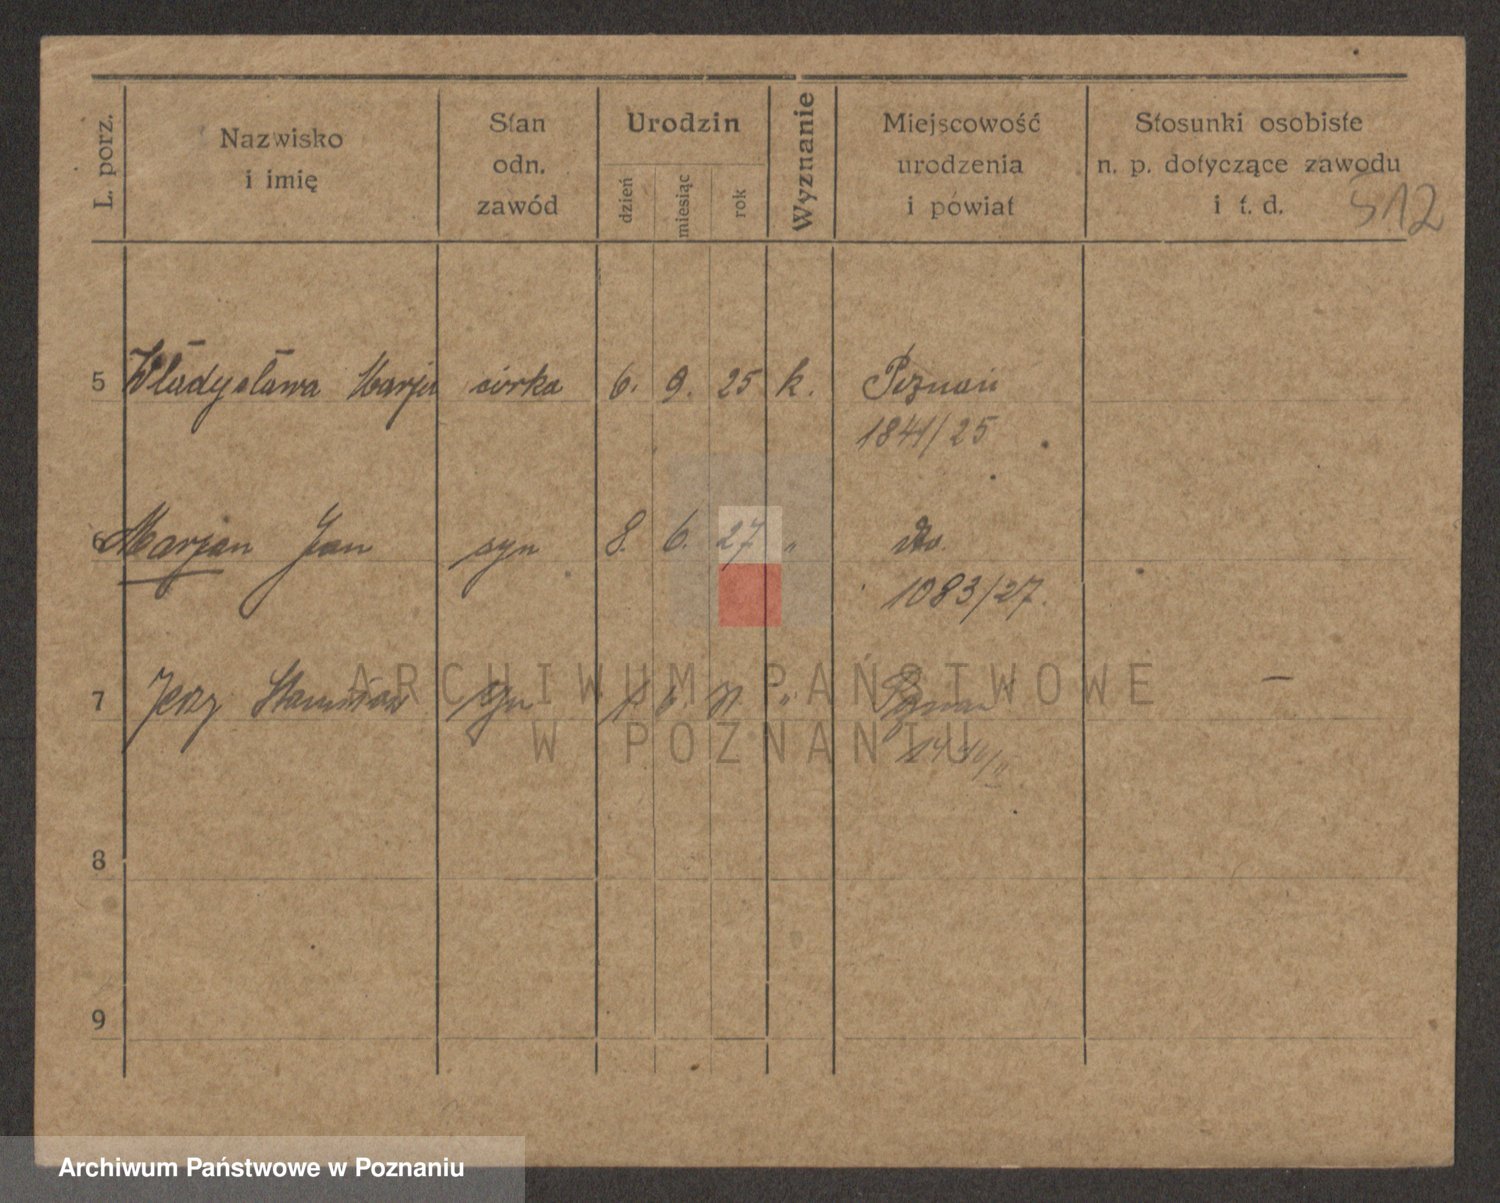 L. porz.
Nazwisko
i imię
Stan
odn.
zawód
Urodzin
dzień
miesiąc
rok
Wyznanie
Miejscowość
urodzenia
i powiat
Stosunki osobiste
n. p. dotyczące zawodu
i t. d.
512
5 Władysława Marja córka 6. 9. 25 k. Poznań
1841/25
6 Marjan Jan syn 8. 6. 27 " dto.
1083/27.
7 Jerzy Stanisław syn " Poznań —
8
9
ARCHIWUM PAŃSTWOWE
W POZNANIU
Archiwum Państwowe w Poznaniu